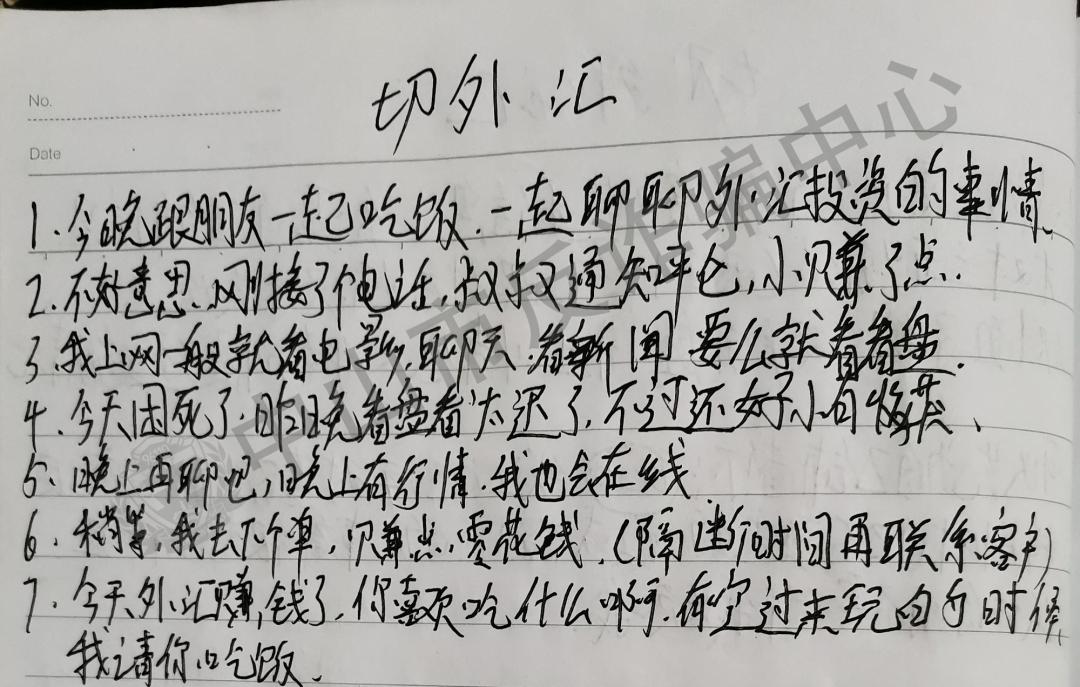 No.
Date
切外汇
1.今晚跟朋友一起吃饭.一起聊聊外汇投资的事情
2.不好意思.刚接了个电话,叔叔通知平仓,小赚了点.
3.我上网一般就看电影,聊天.看新闻 要么就看看盘.
4.今天困死了.昨晚看盘看太迟了.不过还好小有收获、
5、晚上再聊吧,晚上有行情.我也会在线.
6、稍等,我去下个单,赚点零花钱.(隔断时间再联系客户)
7.今天外汇赚钱了.你喜欢吃什么啊.有空过来玩的时候
我请你吃饭.
中山市反诈骗中心